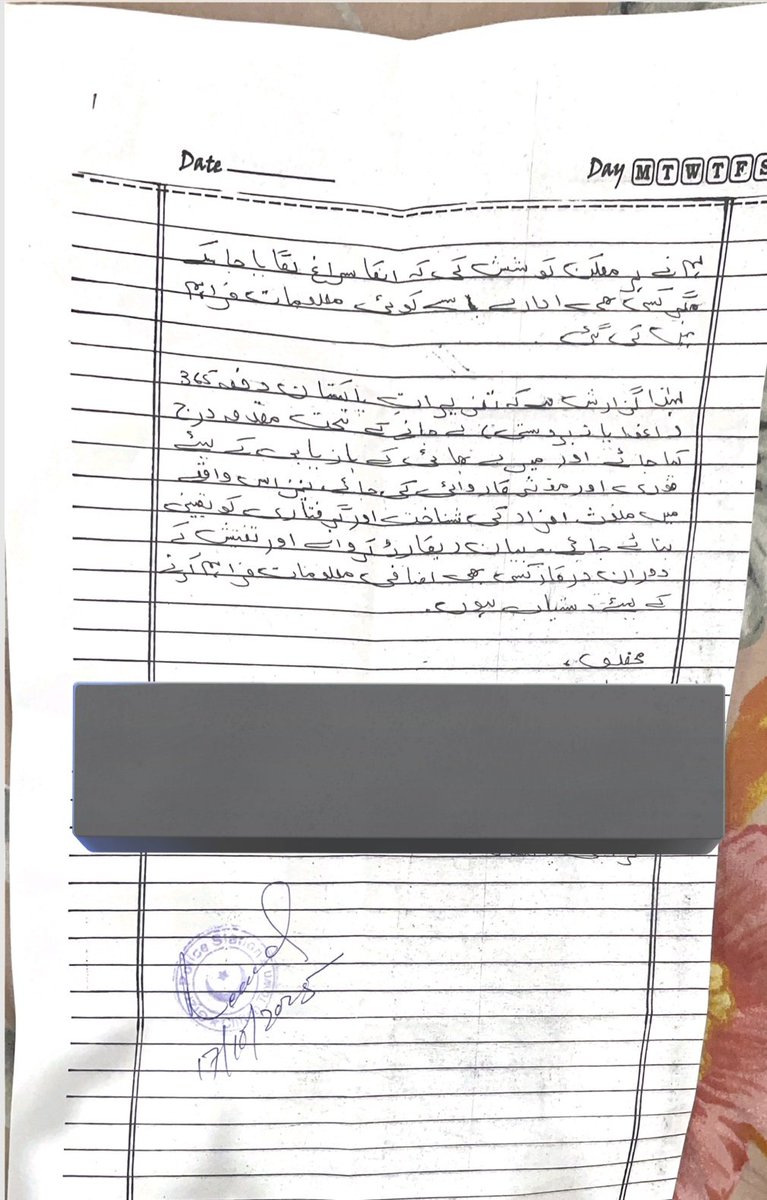 1
Date
Day M T W T F S
ہم نے ہر ممکن کوشش کی کہ انکا سراغ لگایا جا سکے
مگر کسی بھی ادارے سے کوئی معلومات فراہم
نہیں کی گئی
لہٰذا گزارش ہے کہ تعزیرات پاکستان دفعہ 365
(اغوا یا زبردستی لے جانے کے تحت مقدمہ درج
کیا جائے اور میرے بھائی کے بازیابی کے لیئے
فوری اور موثر کاروائی کی جائے، نیز اس واقعے
میں ملوث افراد کی شناخت اور گرفتاری کو یقینی
بنائے جائے. بیان ریکارڈ کروانے اور تفتیش کے
دوران درکار کسی بھی اضافی معلومات فراہم کرنے
کے لیئے دستیاب ہوں.
Police Station
17/10/2025